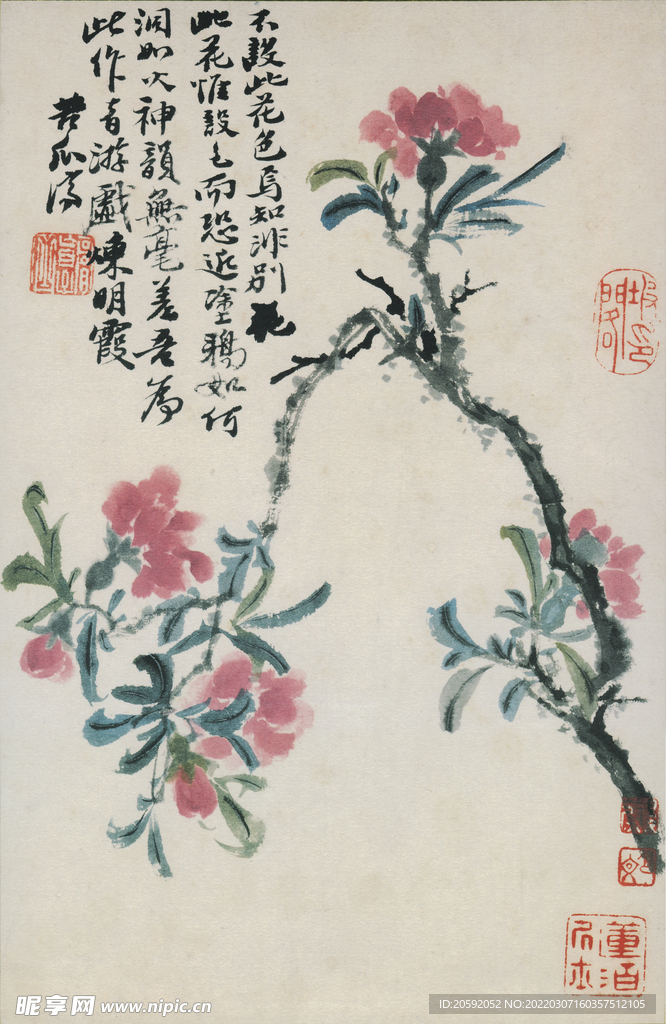 不設此花色焉知非別花
此花惟設色而恐近塗鴉如何
洞如火神韻無毫差吾為
此作音游戲煉明霞
苦瓜濟
昵享网 www.nipic.cn
ID:20592052 NO:20220307160357512105